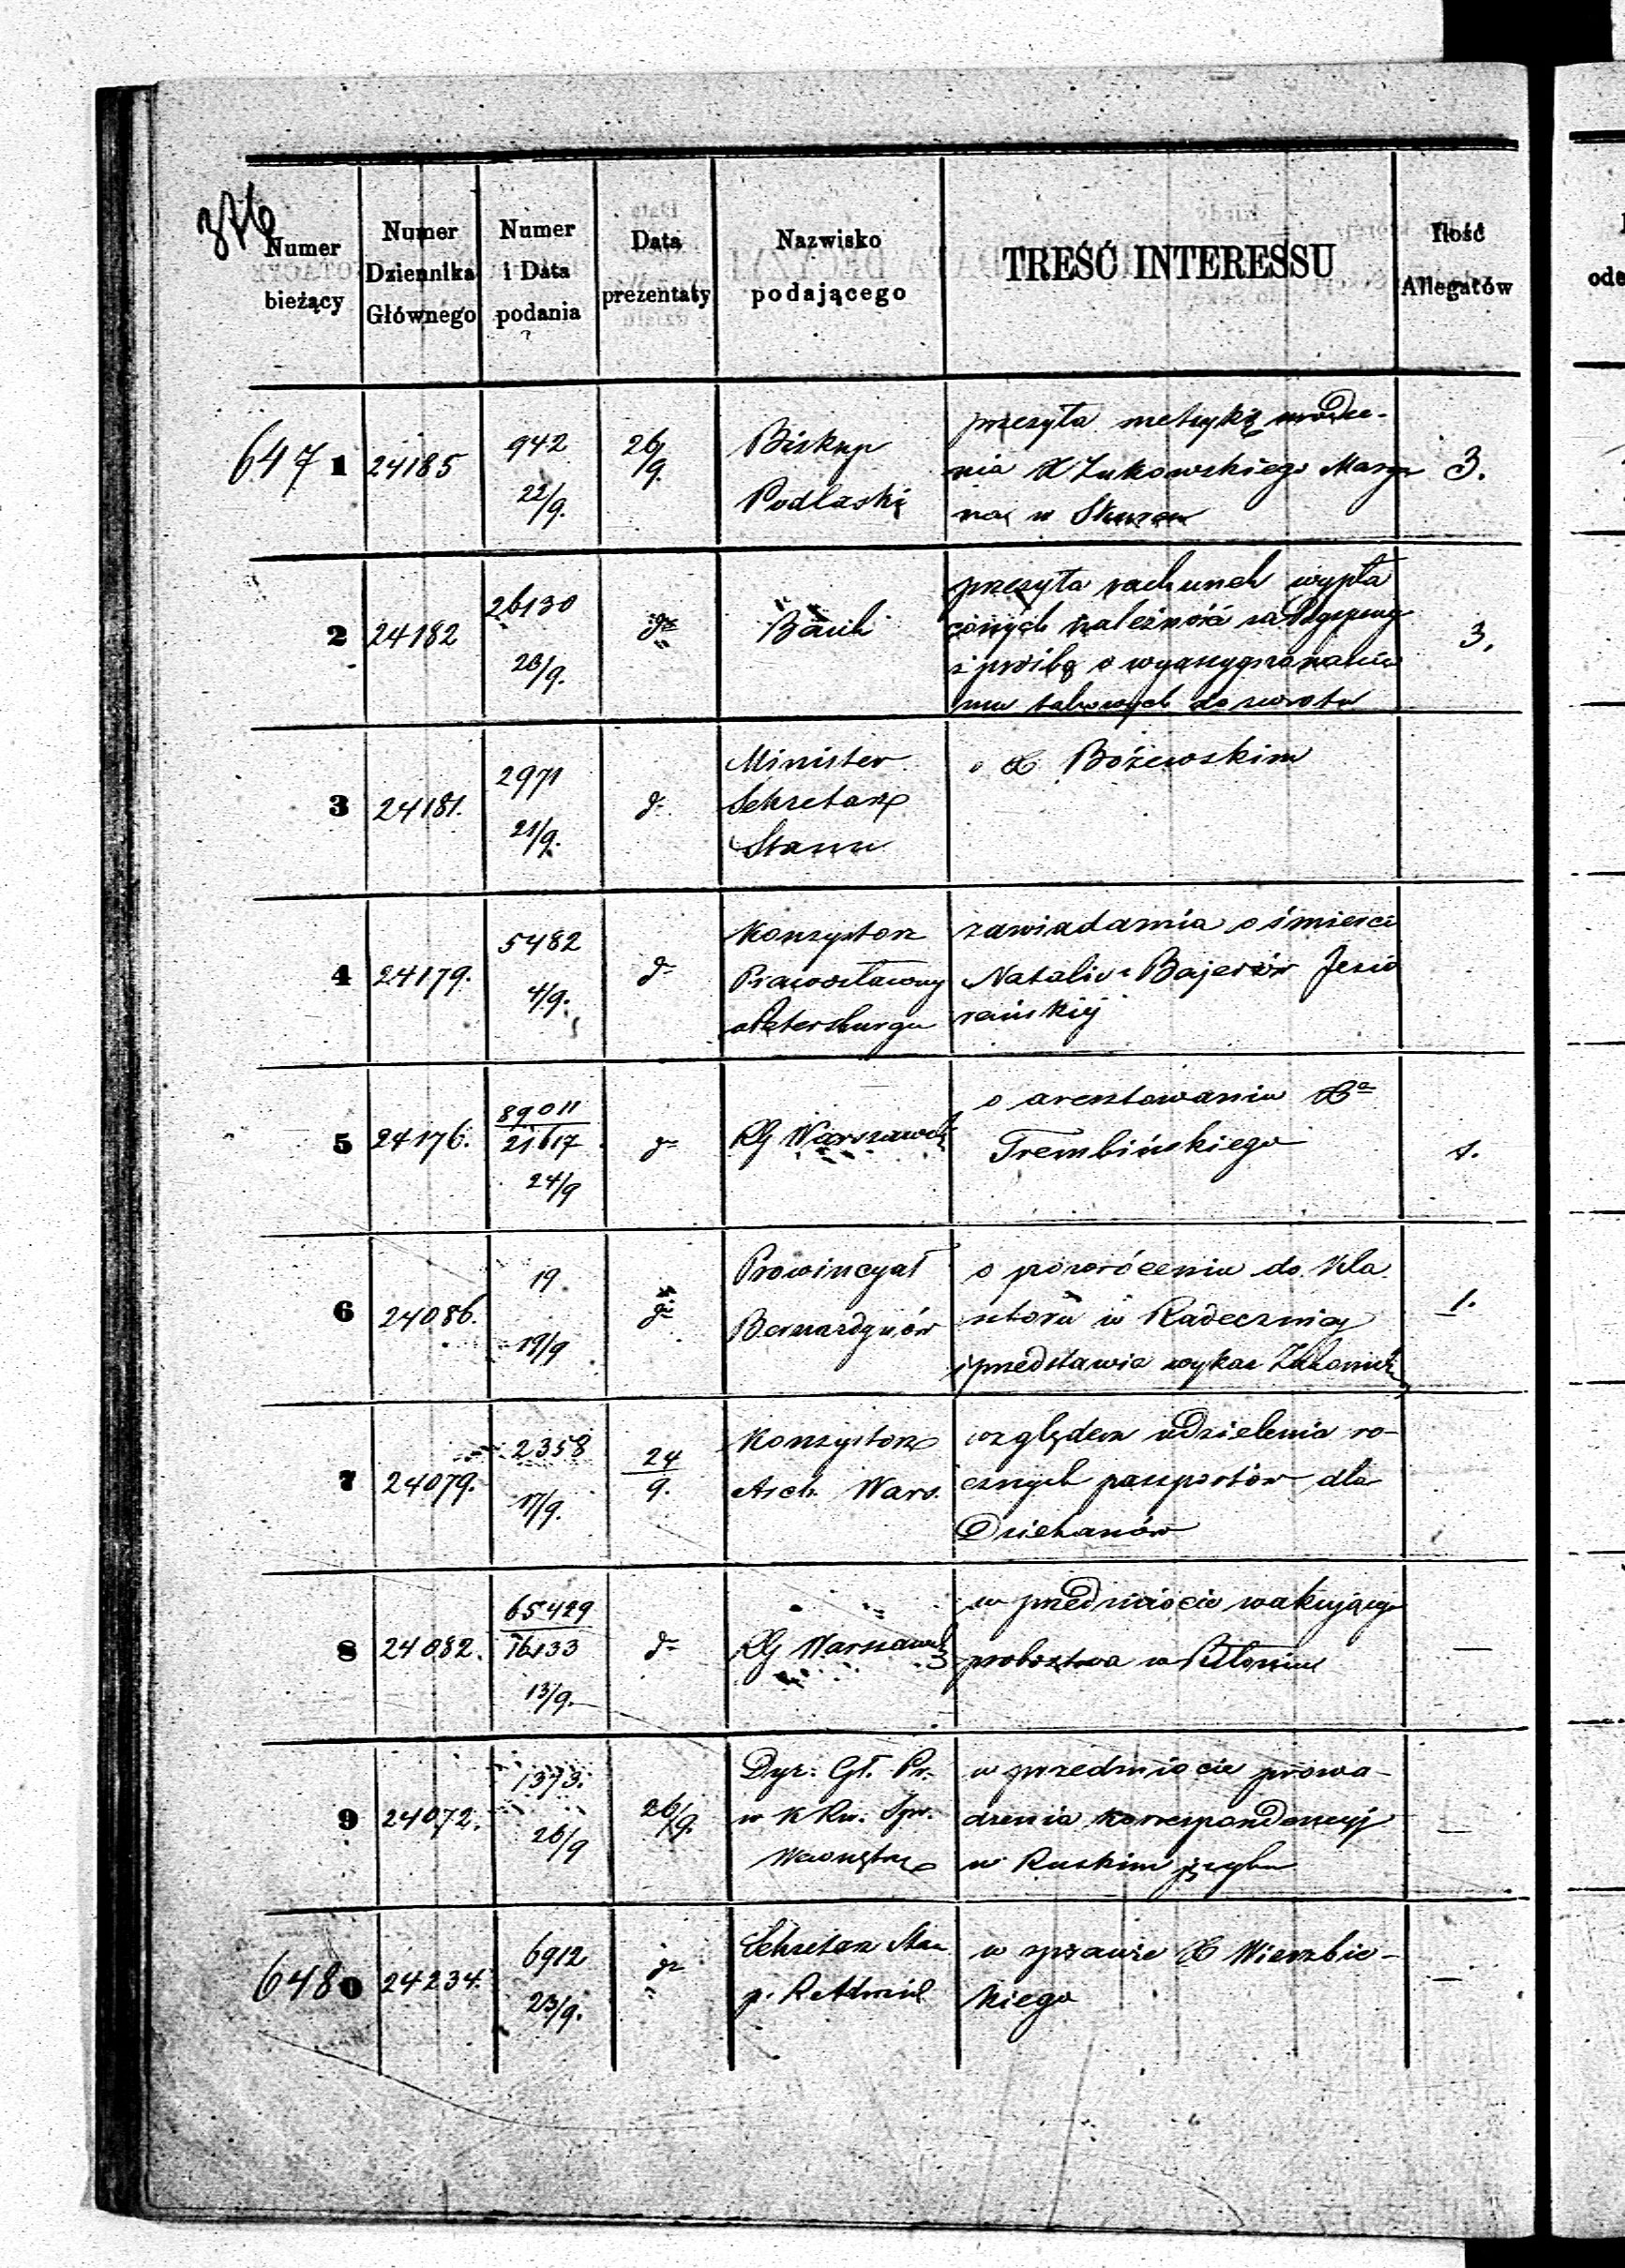 376
Numer bieżący
Numer Dziennika Głównego
Numer i Data podania
Data prezentaty
Nazwisko podającego
TREŚĆ INTERESSU
Ilość Allegatów
6471 24185 942 22/9. 26/9. Biskup Podlaski
przesyła metrykę urodze-
nia X Żukowskiego Marya
na w
3.
2 24182 26130 23/9. do Bank
przesyła rachunek wypła
conych należność za
z prośbą o wyassygnowanie
mu takowych do zwrotu
3.
3 24181. 2971 21/9. do
Minister
Sekretarz
Stanu
o X Bożewskim
4 24179. 5482 4/9. do
Konsystorz
Prawosławny
Petersburgu
zawiadamia o śmierci
Natalii z Bajerów Jezio
rańskiéj
5 24176. 89011 21617 24/9 do
RG Warszawski
o aresztowaniu Xa
Trembińskiego
1.
6 24086. 19 19/9 do
Prowincyał
Bernardynów
o powróceniu do Kla
sztoru w Radecznicy
i przedstawia wykaz
1.
7 24079. 2358 17/9. 24/9.
Konsystorz
Arch. Wars.
względem udzielenia ro-
cznych passportów dla
Dziekanów
8 24082. 65429 16133 13/9. do
RG Warszawski
w przedmiocie wakującego
probostwa w Błoniu
—
9 24072. 1373. 26/9 26/9.
Dyr: Gł. Pr.
w K Rz. Spr.
Wewnętrz
w przedmiocie prowa-
dzenia korrespondencyj
w Ruskim języku
—
6480 24234. 6912 23/9. do
Sekretarz Stan
p. R Admin
w sprawie X Wierzbic-
kiego
—